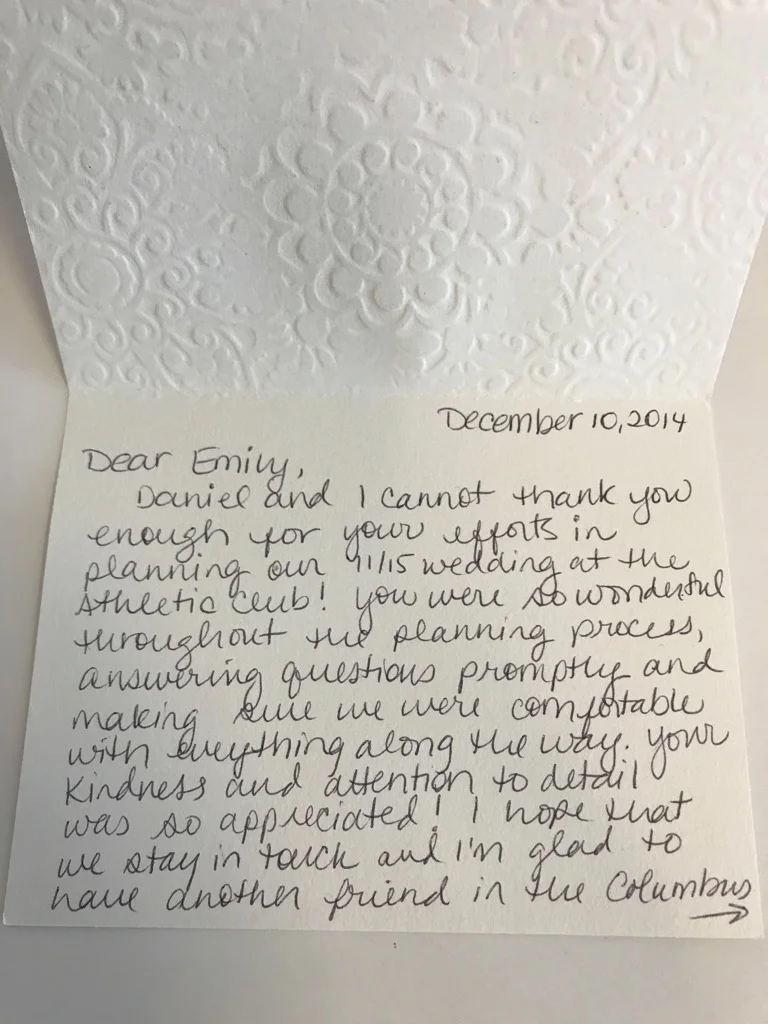 December 10, 2014
Dear Emily,
Daniel and I cannot thank you
enough for your efforts in
planning our 11/15 wedding at the
Athletic Club! You were so wonderful
throughout the planning process,
answering questions promptly and
making sure we were comfortable
with everything along the way. Your
kindness and attention to detail
was so appreciated! I hope that
we stay in touch and I'm glad to
have another friend in the Columbus
→